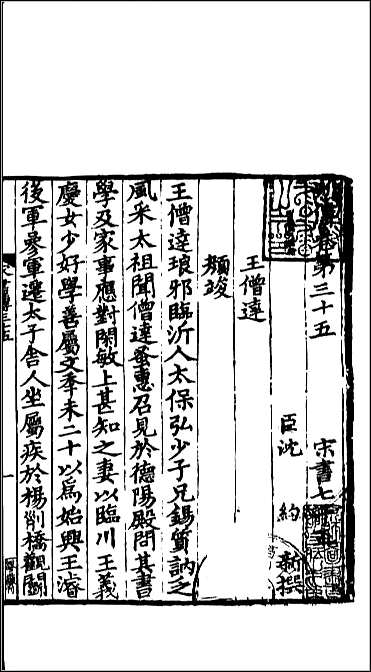 列傳卷第三十五 宋書七十五
臣沈 約 新撰
王僧達
顏竣
王僧達琅邪臨沂人太保弘少子兄錫質訥乏
風采太祖聞僧達蚤惠召見於德陽殿問其書
學及家事應對閑敏上甚知之妻以臨川王義
慶女少好學善屬文年未二十以爲始興王濬
後軍參軍遷太子舍人坐屬疾於楊列橋觀鬭
宋書傳三十五
一